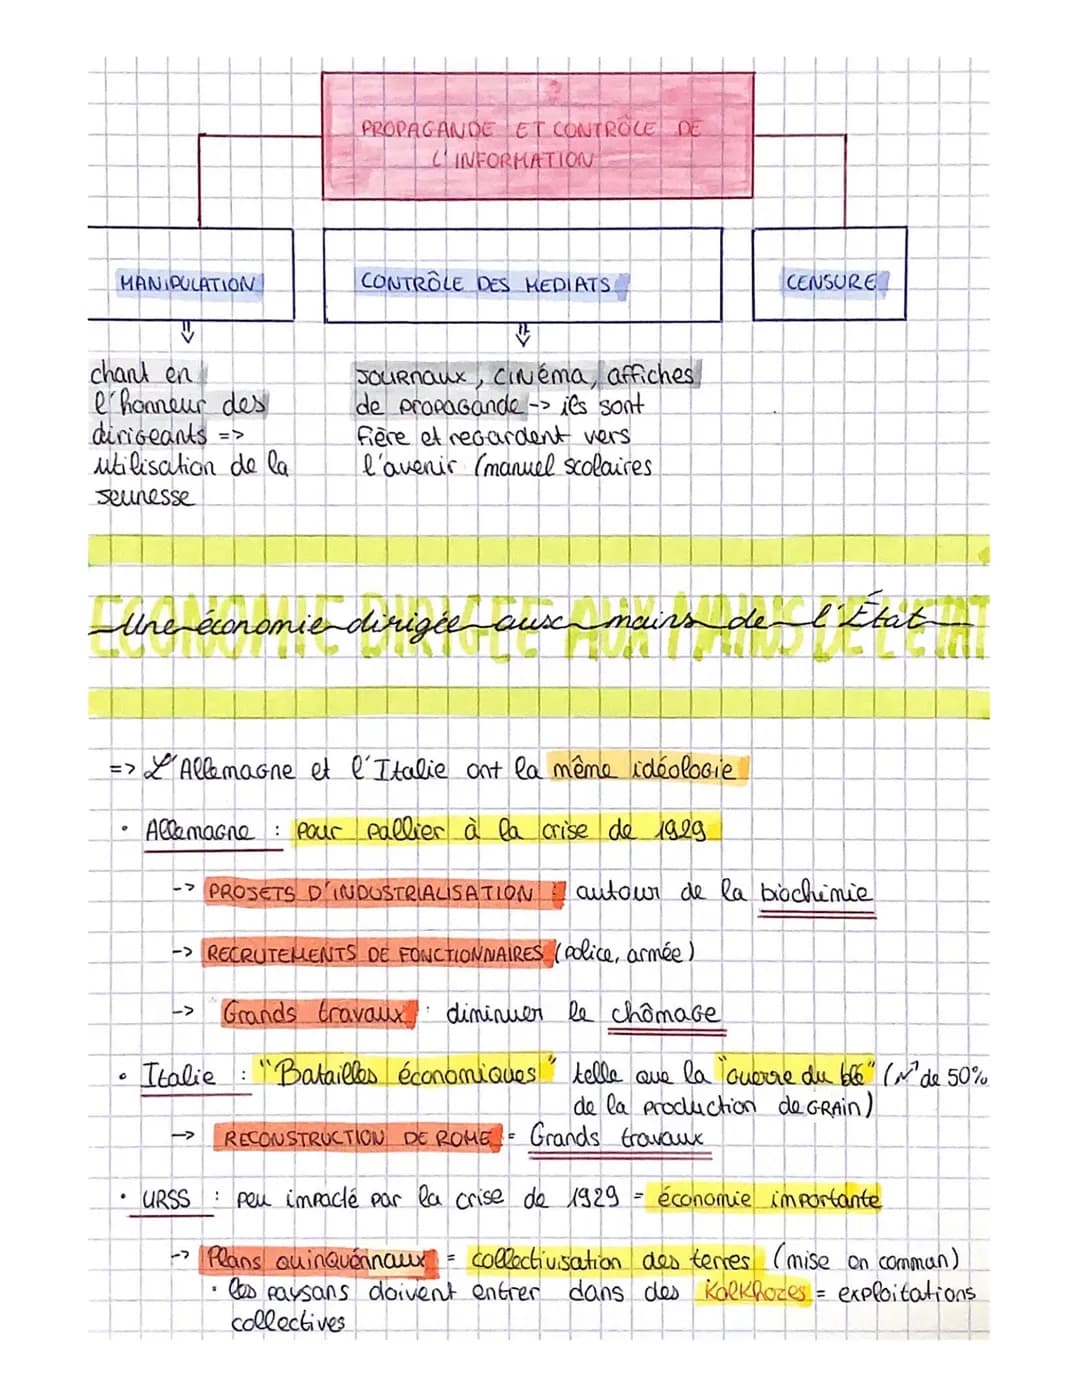 PROPAGANDE ET CONTRÔLE DE
L'INFORMATION
MANIPULATION
CONTRÔLE DES MEDIATS
CENSURE
chant en
l'honneur des
dirigeants =>
utilisation de la
jeunesse
Journaux, cinéma, affiches
de propagande -> ils sont
fière et regardent vers
l'avenir (manuel scolaires
ECONOMIE DIRIGEE AUX MAINS DE L'ETAT
Une économie dirigée aux mains de l'État
=> L'Allemagne et l'Italie ont la même idéologie
• Allemagne : pour pallier à la crise de 1929
-> PROJETS D'INDUSTRIALISATION : autour de la biochimie
-> RECRUTEMENTS DE FONCTIONNAIRES (police, armée)
-> Grands travaux : diminuer le chômage
• Italie : "Batailles économiques" telle que la "guerre du blé" (↗ de 50%
de la production de grain)
-> RECONSTRUCTION DE ROME = Grands travaux
• URSS : peu impacté par la crise de 1929 = économie importante
-> Plans quinquénnaux = collectivisation des terres (mise en commun)
• les paysans doivent entrer dans des Kolkhozes = exploitations
collectives